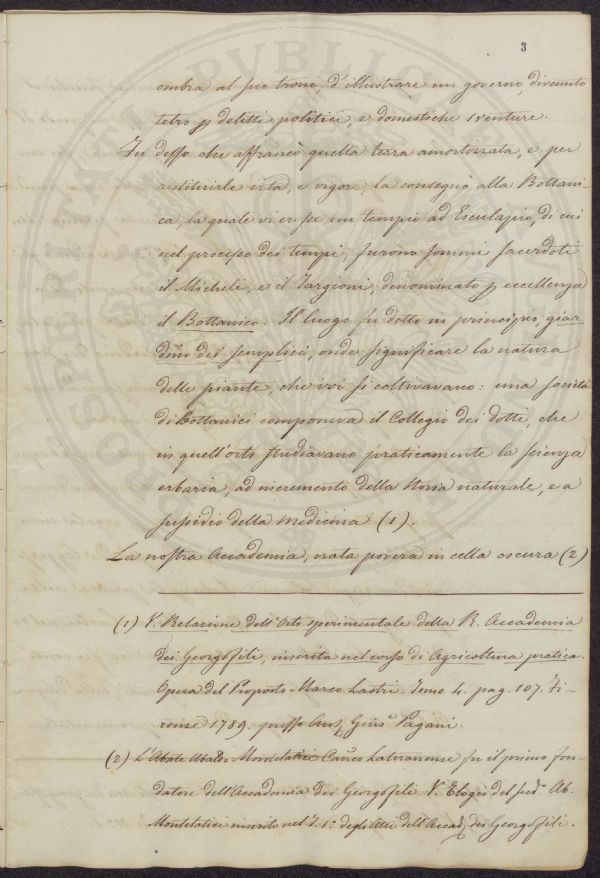 3
ombra al suo trono, d'illustrare un governo, divenuto
tetro p delitti politici, e domestiche sventure.
Fu desso che affrancò quella terra amortizzata, e per
restituirle vita, e vigore, la consegnò alla Bottani-
ca, la quale vi eresse un tempio ad Esculapio, di cui
nel processo dei tempi, furono sommi sacerdoti
il Micheli, e il Targioni, denominato p eccellenza
il Bottanico. Il luogo fu detto in principio, giar
dino dei semplici, onde significare la natura
delle piante, che ivi si coltivavano: una società
di Bottanici componeva il Collegio dei dotti, che
in quell'orto studiavano praticamente la scienza
erbaria, ad incremento della storia naturale, e a
sussidio della medicina (1).
La nostra Accademia, nata povera in cella oscura (2)
(1) V. Relazione dell'Orto sperimentale della R. Accademia
dei Georgofili, inserita nel corso di Agricoltura pratica.
Opera del Proposto Marco Lastri. Tomo 4. pag. 107. Fi-
renze 1789. presso Ant. Gius.e Pagani.
(2) L'Abate Ubaldo Montelatici Can.co Lateranense fu il primo fon-
datore dell'Accademia dei Georgofili V. Elogio del sud.o Ab.
Montelatici inserito nel T. 1.o degli Atti dell'Accad. dei Georgofili.
PROSPERITATI PUBLICAE